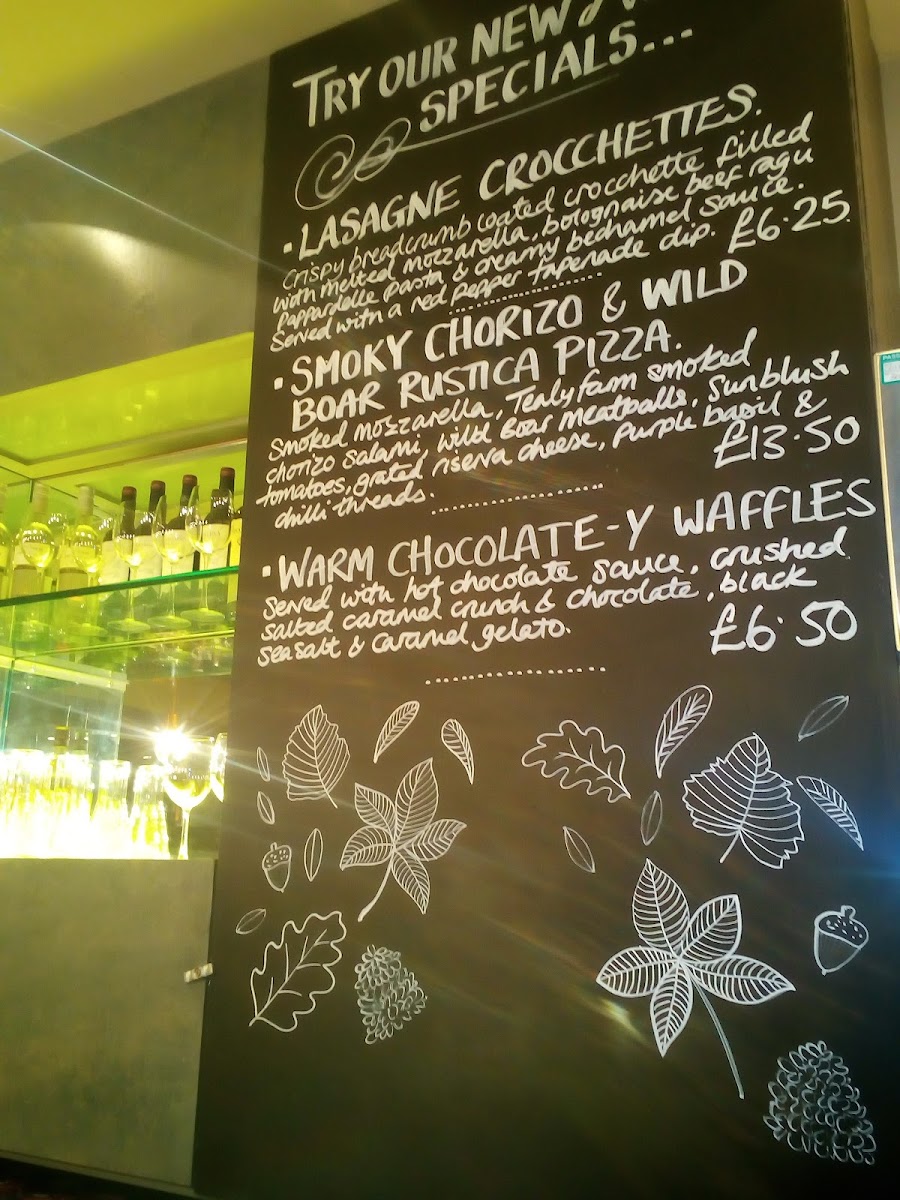 TRY OUR NEW
SPECIALS...
• LASAGNE CROCCHETTES.
Crispy breadcrumb coated crocchette filled
with melted mozzarella, bolognaise beef ragu
Pappardelle pasta & creamy bechamel sauce.
Served with a red pepper tapenade dip. £6.25.
• SMOKY CHORIZO & WILD
BOAR RUSTICA PIZZA.
Smoked mozzarella, Tealyfarm smoked
chorizo salami, wild boar meatballs, Sunblush
tomatoes, grated riserva cheese, purple basil &
chilli threads. £13.50
• WARM CHOCOLATE-Y WAFFLES
Served with hot chocolate sauce, crushed
salted caramel crunch & chocolate, black
seasalt & caramel gelato. £6.50